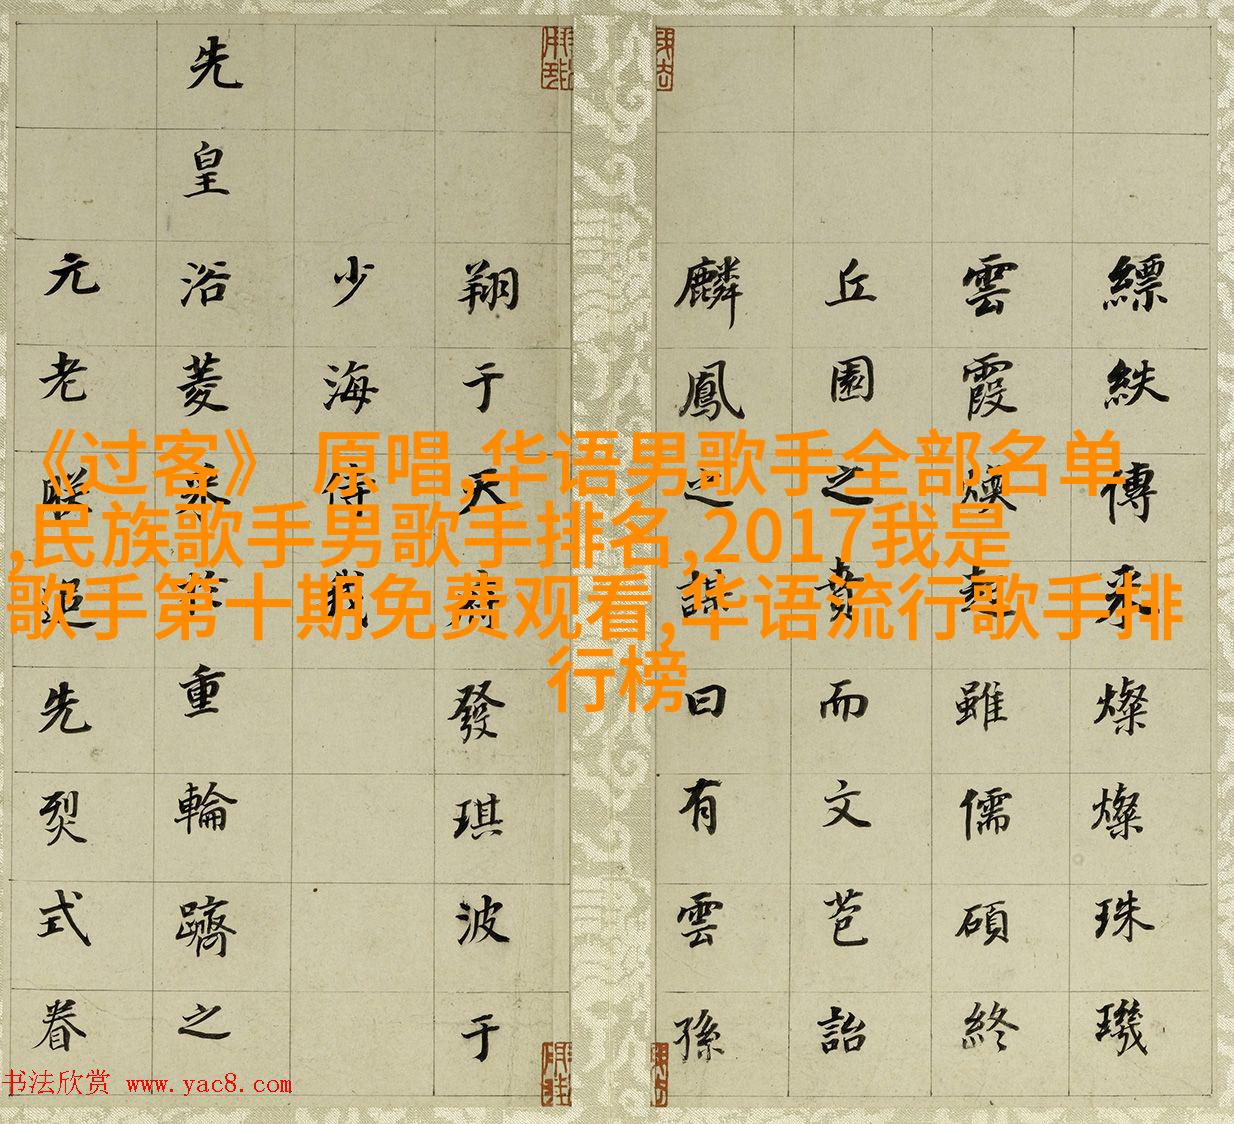 《过客》 原唱,华语男歌手全部名单
,民族歌手男歌手排名,2017我是
歌手第十期免费观看,华语流行歌手排
行榜
縹紩傳采燦燦珠璣
雲霞煥蔚雖儒碩終
丘園之賁而文芭詒
麟鳳之謀曰有雲孫
翔于天府發琪波于
少海侍我
先皇浴菱采華重輪躋之
元老聯翩先烈式眷
书法欣赏 www.yac8.com